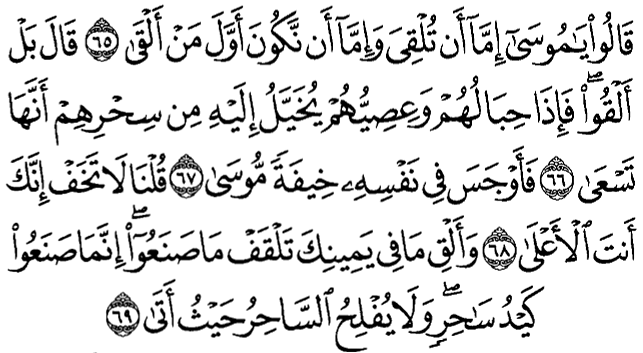 قَالُوا۟ يَـٰمُوسَىٰٓ إِمَّآ أَن تُلْقِىَ وَإِمَّآ أَن نَّكُونَ أَوَّلَ مَنْ أَلْقَىٰ ٦٥ قَالَ بَلْ
أَلْقُوا۟ ۖ فَإِذَا حِبَالُهُمْ وَعِصِيُّهُمْ يُخَيَّلُ إِلَيْهِ مِن سِحْرِهِمْ أَنَّهَا
تَسْعَىٰ ٦٦ فَأَوْجَسَ فِى نَفْسِهِۦ خِيفَةً مُّوسَىٰ ٦٧ قُلْنَا لَا تَخَفْ إِنَّكَ
أَنتَ ٱلْأَعْلَىٰ ٦٨ وَأَلْقِ مَا فِى يَمِينِكَ تَلْقَفْ مَا صَنَعُوٓا۟ ۖ إِنَّمَا صَنَعُوا۟
كَيْدُ سَـٰحِرٍ ۖ وَلَا يُفْلِحُ ٱلسَّاحِرُ حَيْثُ أَتَىٰ ٦٩